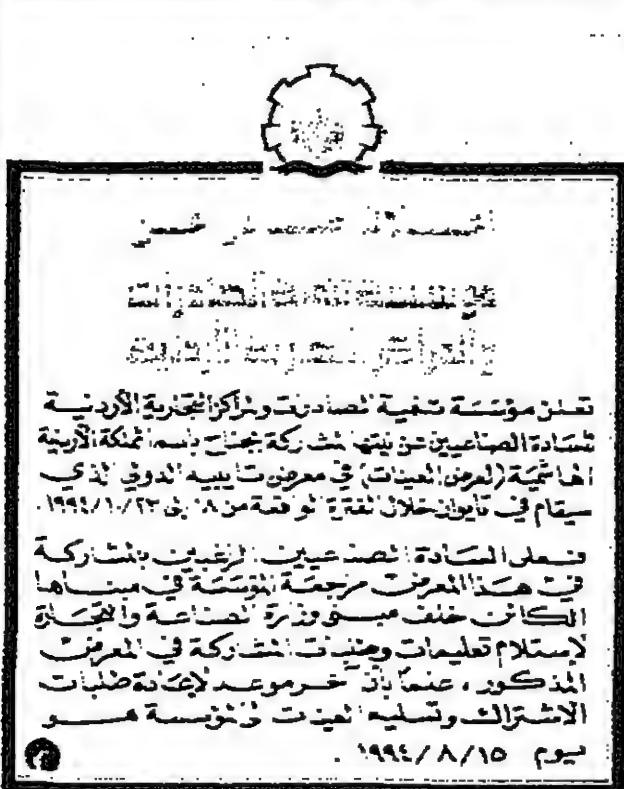 مؤسسة تنمية الصادرات والمراكز التجارية الأردنية
تعلن مؤسسة تنمية الصادرات والمراكز التجارية الأردنية
للسادة الصناعيين عن نيتها المشاركة بجناح باسم المملكة الأردنية
الهاشمية (لعرض العينات) في معرض تايبيه الدولي الذي
سيقام في تايوان خلال الفترة الواقعة من ١٨ الى ١٩٩٤/١٠/٢٣.
فعلى السادة الصناعيين الراغبين بالمشاركة
في هذا المعرض مراجعة المؤسسة في مبناها
الكائن خلف مبنى وزارة الصناعة والتجارة
لاستلام تعليمات وطلبات المشاركة في المعرض
المذكور، علماً بأن آخر موعد لإعادة طلبات
الاشتراك وتسليم العينات للمؤسسة هو
يوم ١٩٩٤/٨/١٥.